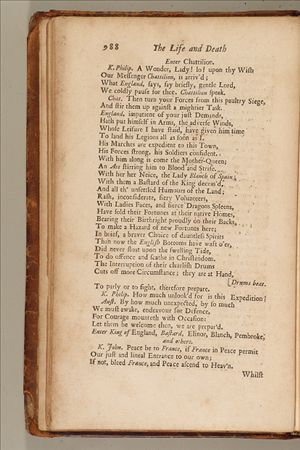 988 The Life and Death
Enter Chattilion.
K. Philip. A Wonder, Lady! lo! upon thy Wish
Our Messenger Chattilion, is arriv'd;
What England, says, say briefly, gentle Lord,
We coldly pause for thee. Chattilion speak.
Chat. Then turn your Forces from this paultry Siege,
And stir them up against a mightier Task.
England, impatient of your just Demands,
Hath put himself in Arms, the adverse Winds,
Whose Leisure I have staid, have given him time
To land his Legions all as soon as I.
His Marches are expedient to this Town,
His Forces strong, his Soldiers confident.
With him along is come the Mother-Queen;
An Ate stirring him to Blood and Strife,
With her her Neice, the Lady Blanch of Spain;
With them a Bastard of the King deceas'd,
And all th' unsettled Humours of the Land;
Rash, inconsiderate, fiery Voluntiers,
With Ladies Faces, and fierce Dragons Spleens,
Have sold their Fortunes at their native Homes,
Bearing their Birthright proudly on their Backs,
To make a Hazard of new Fortunes here;
In brief, a braver Choice of dauntless Spirits
Than now the English Bottoms have waft o'er,
Did never float upon the swelling Tide,
To do offence and scathe in Christendom.
The Interruption of their churlish Drums
Cuts off more Circumstance; they are at Hand,
[Drums beat.
To parly or to fight, therefore prepare.
K. Philip. How much unlook'd for is this Expedition!
Aust. By how much unexpected, by so much
We must awake, endeavour for Defence,
For Courage mounteth with Occasion:
Let them be welcome then, we are prepar'd.
Enter King of England, Bastard, Elinor, Blanch, Pembroke,
and others.
K. John. Peace be to France, if France in Peace permit
Our just and lineal Entrance to our own;
If not, bleed France, and Peace ascend to Heav'n.
Whilst